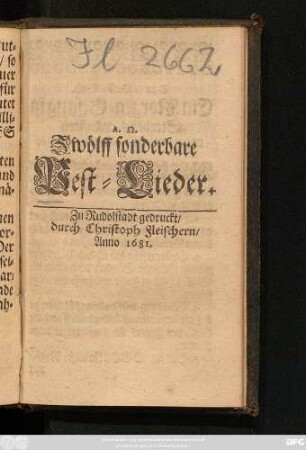 Il 2662,
A. Ω.
Zwölff sonderbare
Pest-Lieder.
Zu Rudolstadt gedruckt/
durch Christoph Fleischern/
Anno 1681.